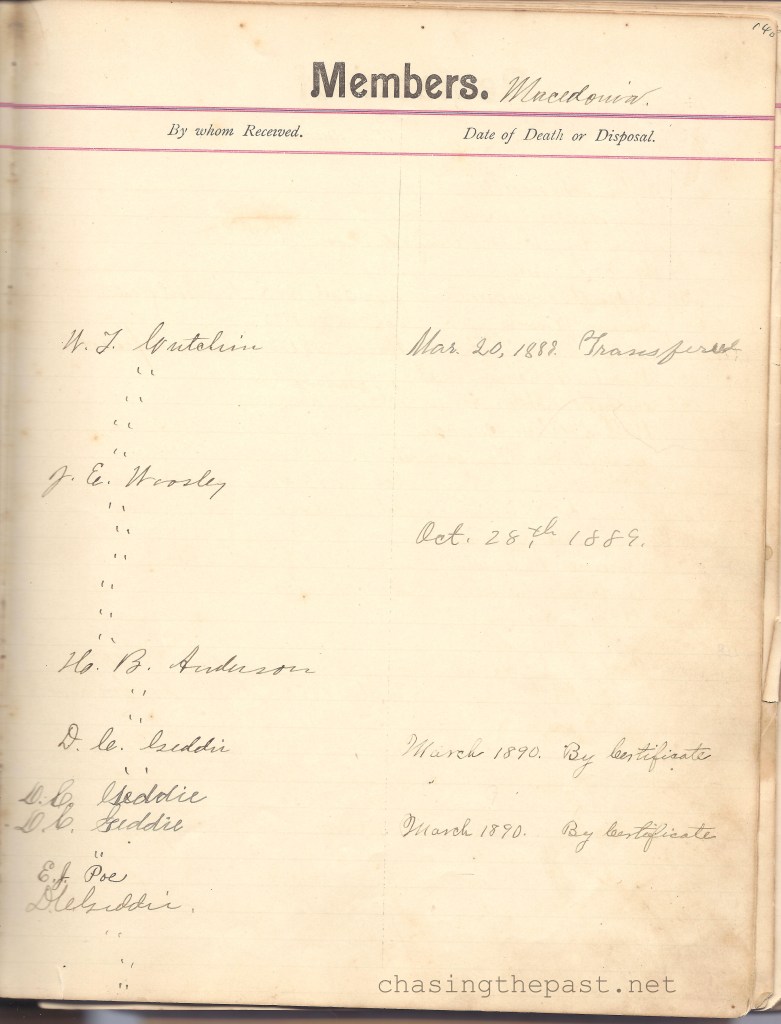 140
Members. Macedonia.
By whom Received. Date of Death or Disposal.
W. F. Cutchin Mar. 20, 1888. Transfered
"
"
"
"
J. E. Woosley
"
" Oct. 28th, 1889.
"
"
"
"
H. B. Anderson
"
"
D. C. Geddie March 1890. By Certificate
" "
D. C. Geddie
D. C. Geddie March 1890. By Certificate
"
E. J. Poe
D. C. Geddie.
"
"
"
chasingthepast.net